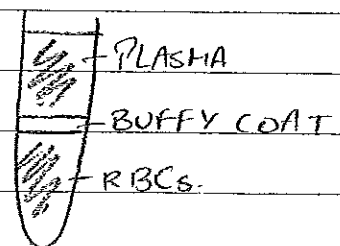 PLASMA
BUFFY COAT
RBCs.